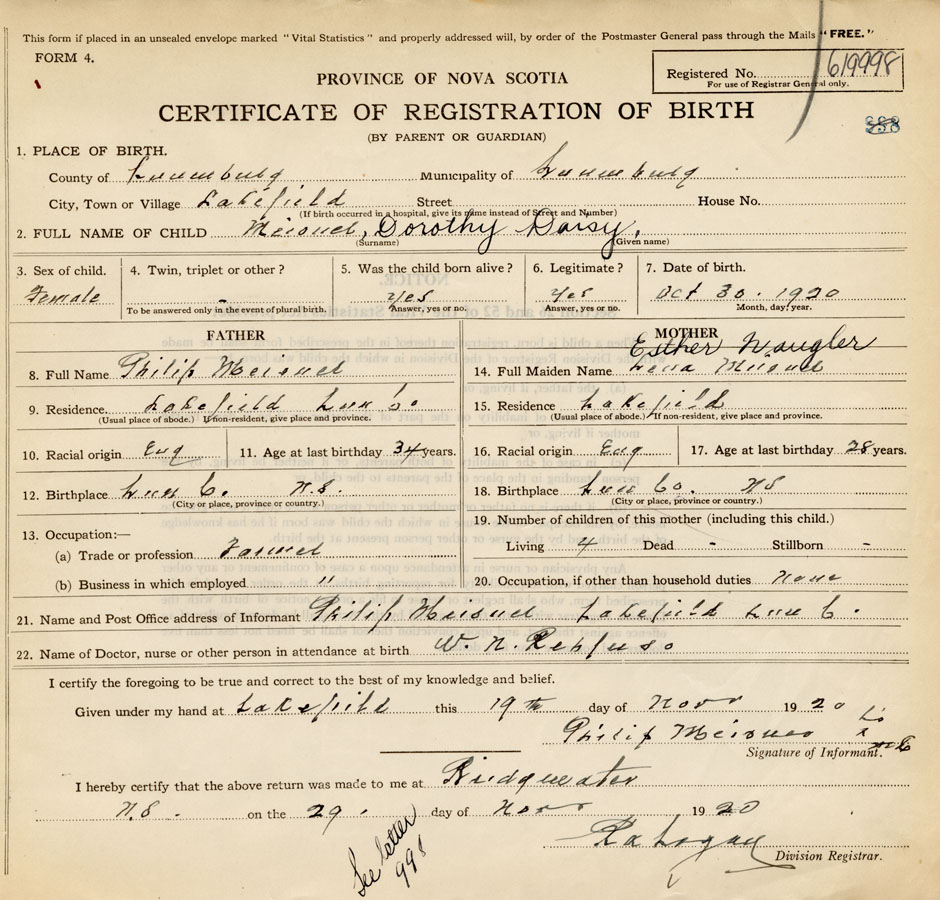 This form if placed in an unsealed envelope marked "Vital Statistics" and properly addressed will, by order of the Postmaster General pass through the Mails "FREE."
FORM 4.
PROVINCE OF NOVA SCOTIA
Registered No. 619998
For use of Registrar General only.
CERTIFICATE OF REGISTRATION OF BIRTH
(BY PARENT OR GUARDIAN)
1. PLACE OF BIRTH.
County of Lunenburg Municipality of Lunenburg
City, Town or Village Lakefield Street House No.
(If birth occurred in a hospital, give its name instead of Street and Number)
2. FULL NAME OF CHILD Meisner, Dorothy Daisy.
(Surname) (Given name)
3. Sex of child. 4. Twin, triplet or other? 5. Was the child born alive? 6. Legitimate? 7. Date of birth.
Female - Yes Yes Oct 30. 1920
To be answered only in the event of plural birth. Answer, yes or no. Answer, yes or no. Month, day, year.
FATHER
8. Full Name Philip Meisner
9. Residence. Lakefield Lun Co
(Usual place of abode.) If non-resident, give place and province.
10. Racial origin Eng 11. Age at last birthday 34 years.
12. Birthplace Lun C. N.S.
(City or place, province or country.)
13. Occupation:—
(a) Trade or profession Farmer
(b) Business in which employed "
MOTHER
Esther Naugler
14. Full Maiden Name Lena Meisner
15. Residence Lakefield
(Usual place of abode.) If non-resident, give place and province.
16. Racial origin Eng 17. Age at last birthday 28 years.
18. Birthplace Lun Co. NS
(City or place, province or country.)
19. Number of children of this mother (including this child.)
Living 4 Dead - Stillborn -
20. Occupation, if other than household duties None
21. Name and Post Office address of Informant Philip Meisner Lakefield Lun C.
22. Name of Doctor, nurse or other person in attendance at birth W. N. Rehfuss
I certify the foregoing to be true and correct to the best of my knowledge and belief.
Given under my hand at Lakefield this 19th day of Novr 1920
Philip Meisner
Signature of Informant.
I hereby certify that the above return was made to me at Bridgewater
N.S. on the 29. day of Novr 1920
Division Registrar.
See letter
998